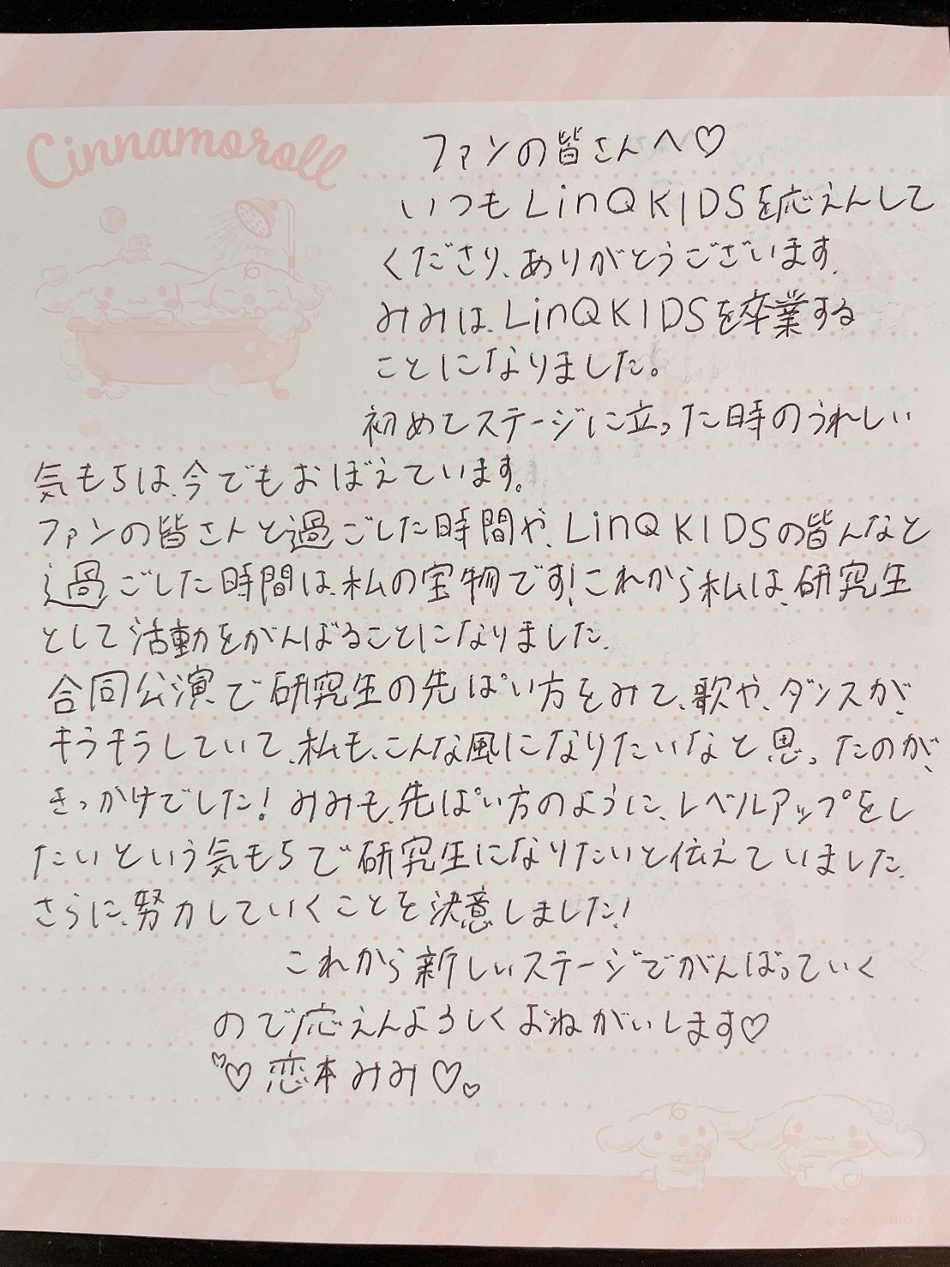 Cinnamoroll
ファンの皆さんへ♡
いつもLinQ KIDSを応えんして
くださり、ありがとうございます。
みみは、LinQ KIDSを卒業する
ことになりました。
初めてステージに立った時のうれしい
気もちは、今でもおぼえています。
ファンの皆さんと過ごした時間や、LinQ KIDSの皆んなと
過ごした時間は、私の宝物です!これから私は、研究生
として活動をがんばることになりました。
合同公演で研究生の先ぱい方をみて、歌や、ダンスが、
キラキラしていて、私も、こんな風になりたいなと思ったのが、
きっかけでした!みみも、先ぱい方のように、レベルアップをし
たいという気もちで研究生になりたいと伝えていました。
さらに、努力していくことを決意しました!
これから新しいステージでがんばっていく
ので応えんよろしくおねがいします♡
♡♡恋本みみ♡♡